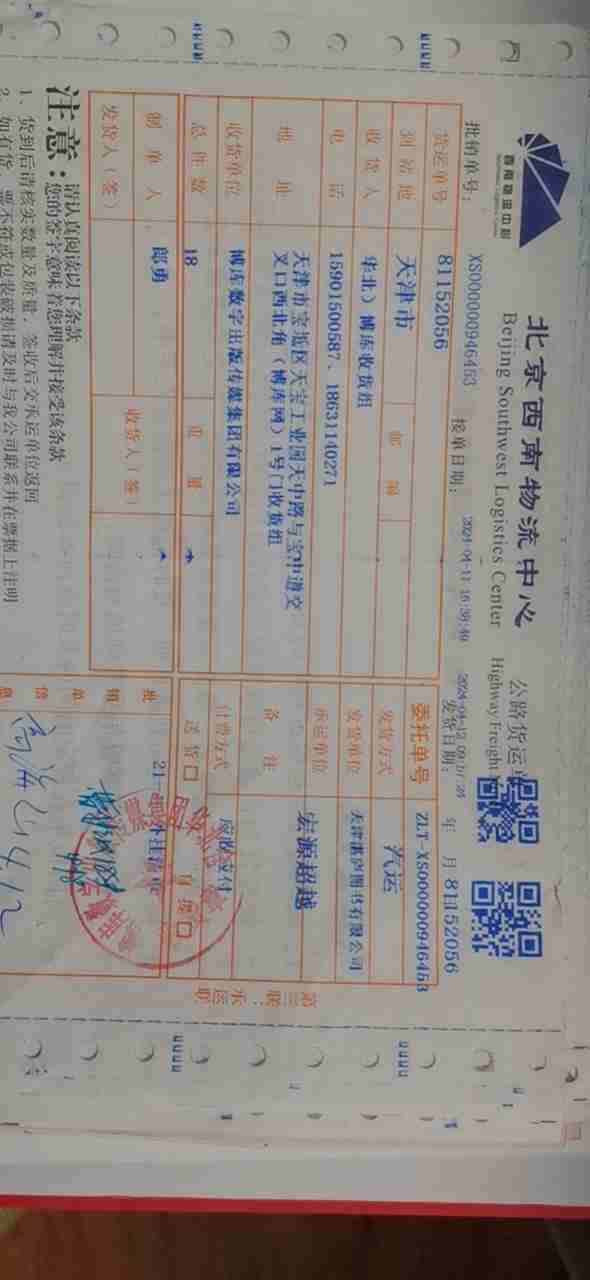 西南物流中心
Southwest Logistics Center
北京西南物流中心
Beijing Southwest Logistics Center
公路货运
Highway Freight
批销单号: XS000000946453
接单日期: 2024-04-11 16:38:40
发货日期: 年 月 日
81152056
货运单号 81152056
委托单号 ZLT-XS000000946453
到站地 天津市 邮编
发货方式 汽运
收货人 华北）博库收货组
发货单位 天津湛庐图书有限公司
电话 15901500587、18631140271
承运单位 宏源超越
地址 天津市宝坻区天宝工业园天中路与宝中道交
叉口西北角（博库网）1号门收货组
备注
收货单位 博库数字出版传媒集团有限公司
付费方式
总件数 18 重量
送货口 自提口
制单人 郎勇
发货人（签） 收货人（签）
批销单
第三联：承运联
注意：
请认真阅读以下条款
您的签字意味着您理解并接受该条款
1、货到后请核实数量及质量，签收后交承运单位返回
2、如有货、票不符或包装破损请及时与我公司联系并在票据上注明